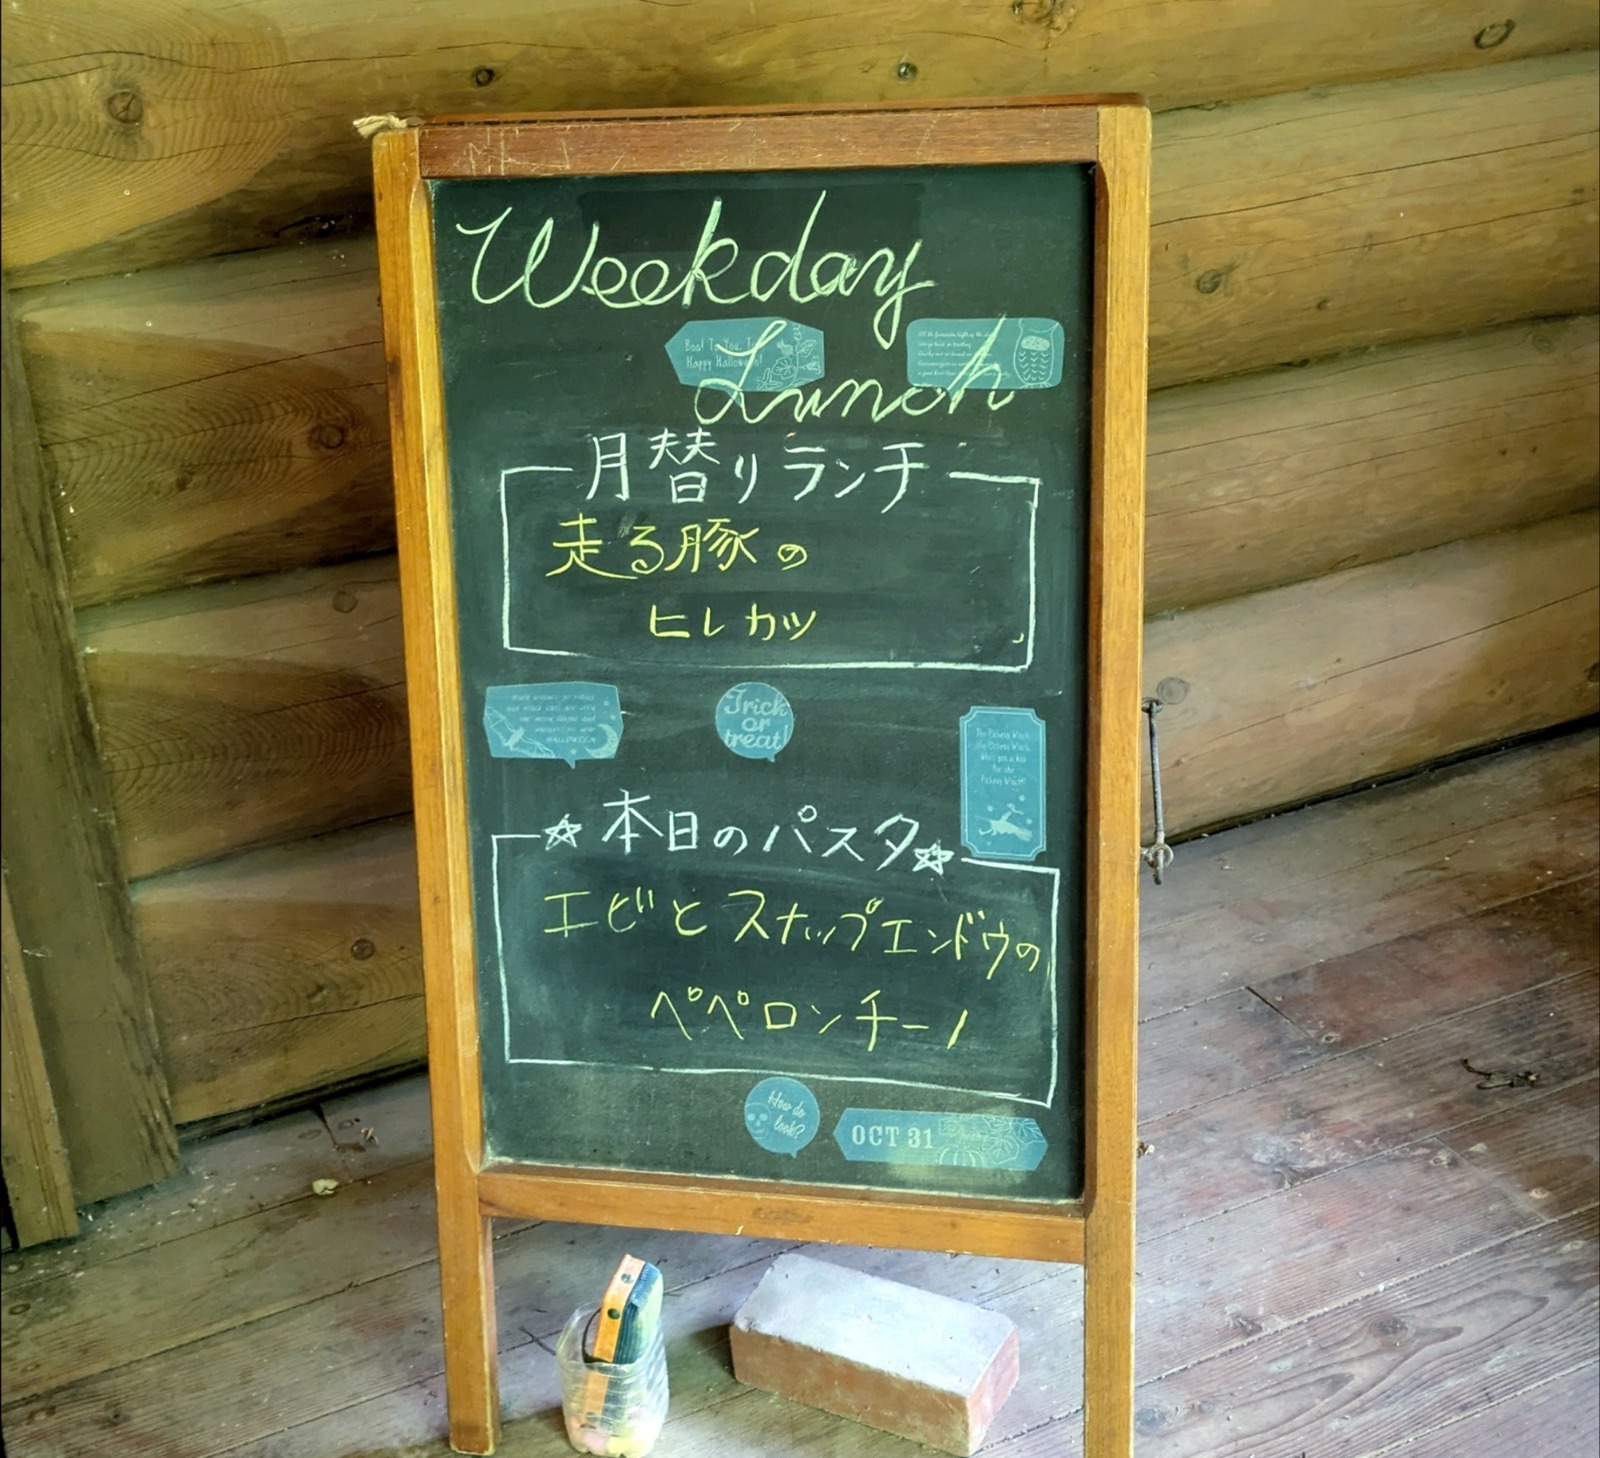 Weekday
Boo! To You, To
Happy Halloween!
Lunch
月替りランチ
走る豚の
ヒレカツ
Trick
or
treat!
The Pickety Witch
The Pickety Witch
Who'll give a kiss
For the
Pickety Witch?
☆本日のパスタ☆
エビとスナップエンドウの
ペペロンチーノ
How do
I look?
OCT 31